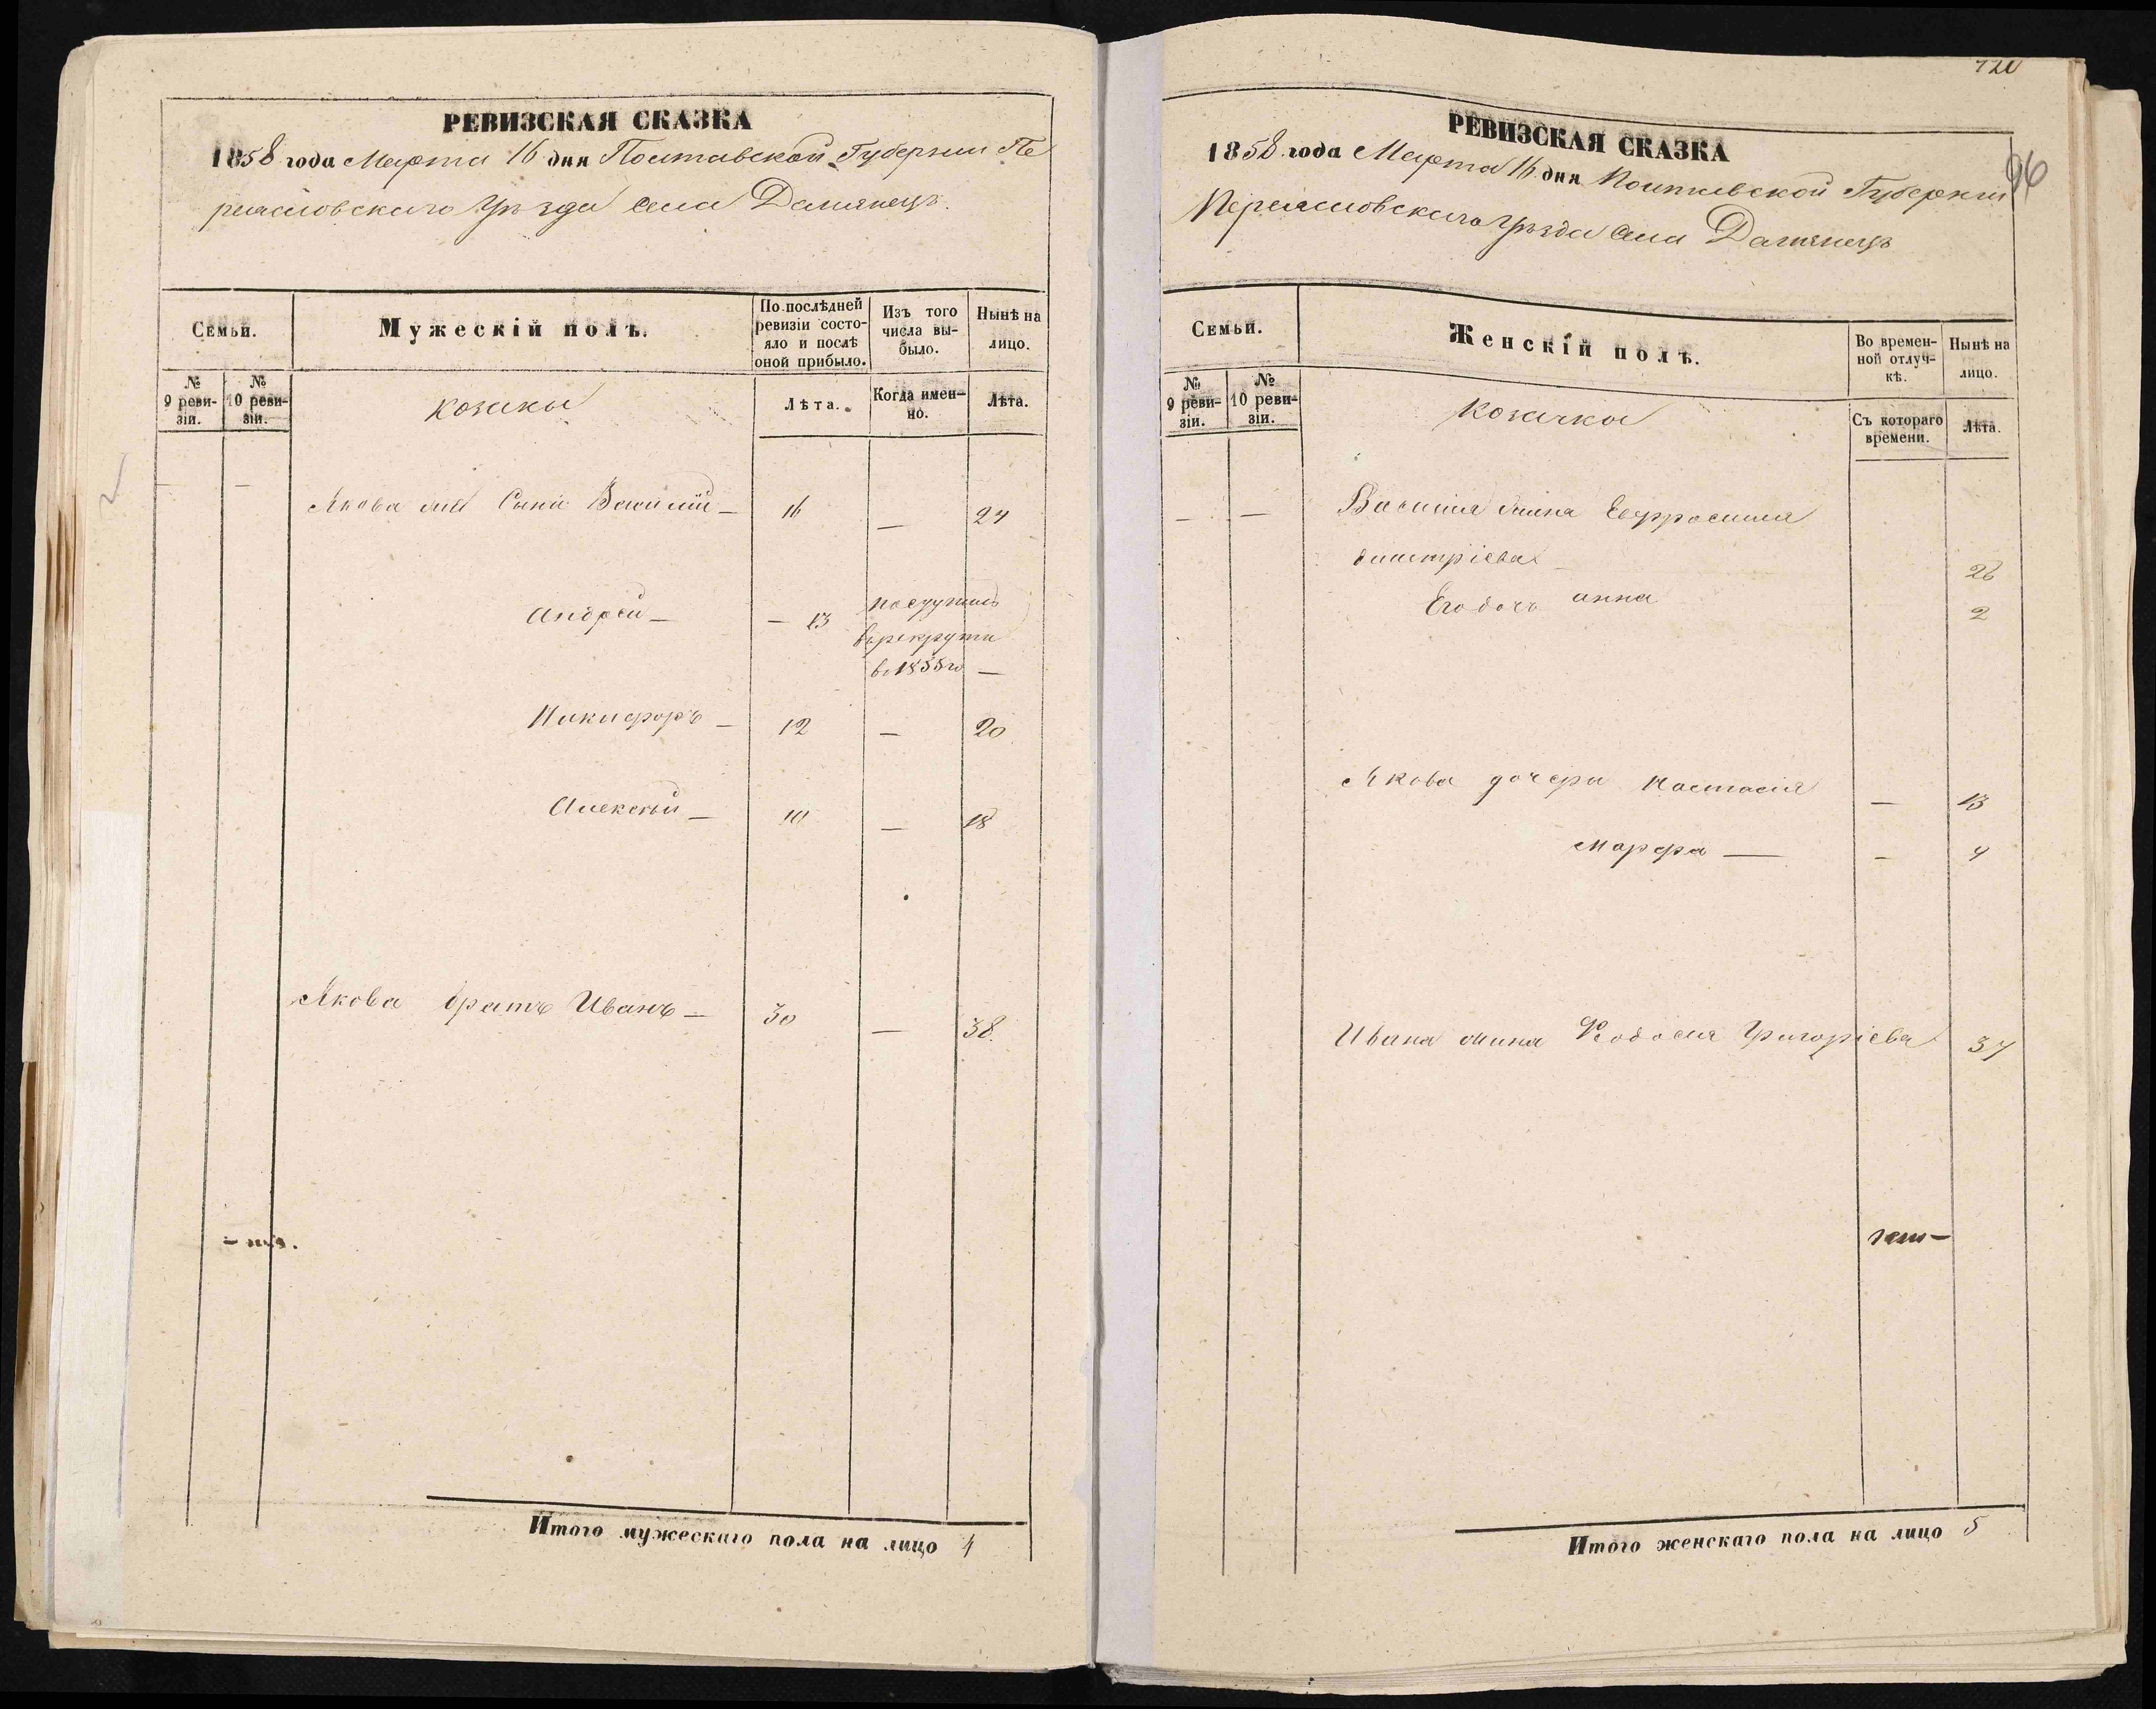 РЕВИЗСКАЯ СКАЗКА
1858 года Марта 16 дня Полтавской Губернии Пе
реяславскаго Уѣзда Села Демянецъ.
Семьи.
Мужескій полъ.
По послѣдней ревизіи состояло и послѣ оной прибыло.
Изъ того числа выбыло.
Нынѣ на лицо.
№ 9 ревизіи.
№ 10 ревизіи.
козаки
Лѣта.
Когда именно.
Лѣта.
— — Якова Сыни Василій — 16 — 24
Андрей — — 13 поступилъ
въ рекруты
въ 1855 го —
Никифоръ — 12 — 20
Алексѣй — 10 — 18
Якова братъ Иванъ — 30 — 38.
Итого мужескаго пола на лицо 4
720
96
РЕВИЗСКАЯ СКАЗКА
1858 года Марта 16 дня Полтавской Губернии
Переяславскаго Уѣзда Села Демянецъ
Семьи.
Женскій полъ.
Во временной отлучкѣ.
Нынѣ на лицо.
№ 9 ревизіи.
№ 10 ревизіи.
козачки
Съ котораго времени.
Лѣта.
— — Василія жина Евфросиния
Дмитріева 26
Его дочь анна 2
Якова дочери Настасія — 13
Марфа — — 4
Ивана жина Феодосия Григоріева 37
Итого женскаго пола на лицо 5